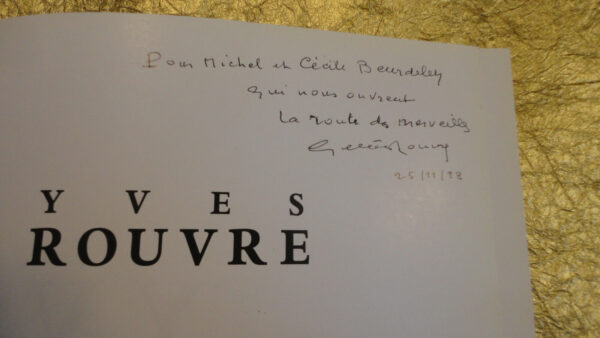 Pour Michel et Cécile Beurdeley
qui nous ouvrent
La route des merveilles
25/11/98
YVES
ROUVRE